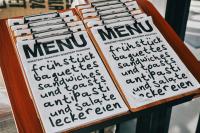 MENU
frühstück
baguettes
sandwiches
und toasts
antipasti
und salate
leckereien
MENU
frühstück
baguettes
sandwiches
und toasts
antipasti
und salate
leckereien